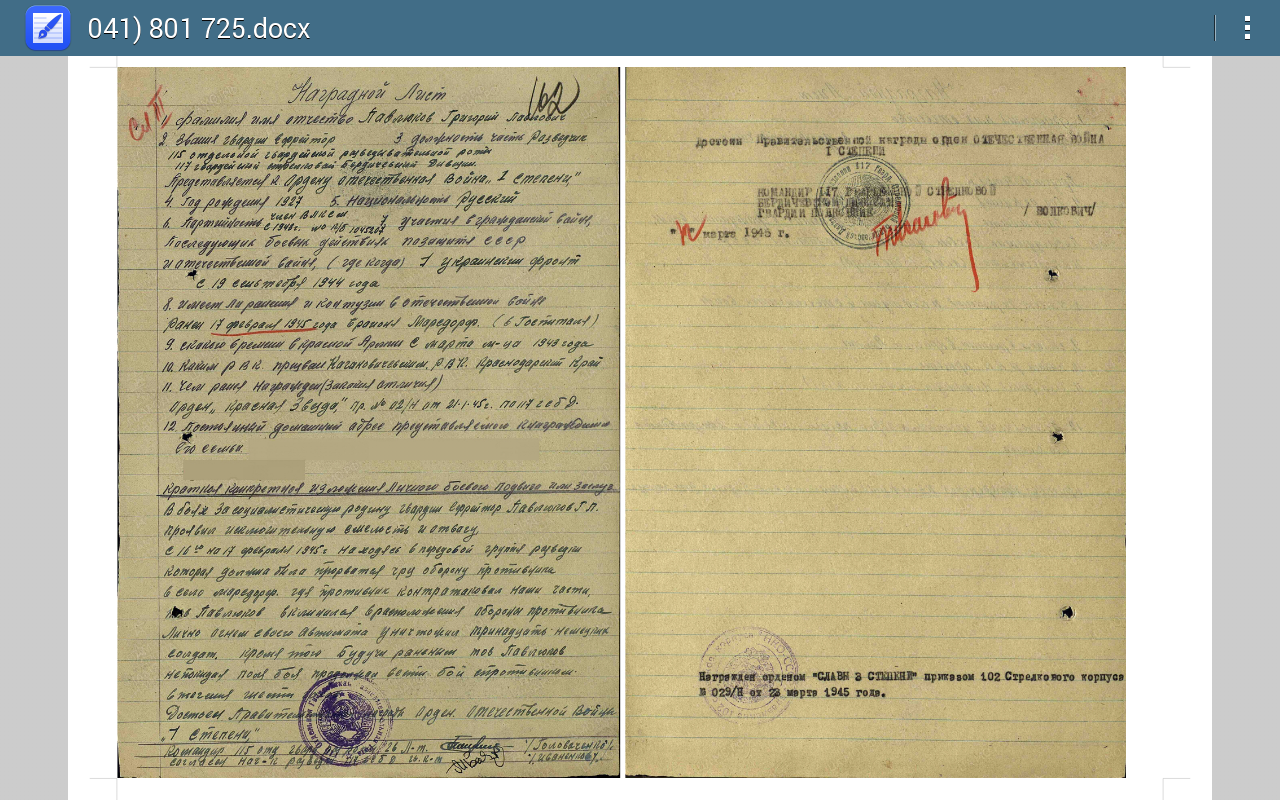 041) 801 725.docx
Наградной Лист
162
1. фамилия имя отчество Павлюков Григорий Павлович
2. Звания гвардии Ефрейтор 3 должность часть Разведчик
115 отдельной гвардейской разведывательной роты
117 гвардейской стрелковой Бердичевской Дивизии.
Представляется к Ордену отечественная Война „I Степени"
4. Год рождения 1927 5. Национальность Русский
6. Партийность член ВЛКСМ 7 участия в гражданской войне,
с 1943г. № 1045207
Последующих боевых действиях по защите СССР
и отечественной войне, (где когда) 1 украинский фронт
с 19 сентября 1944 года
8. имеет ли ранения и контузии в отечественной войне
Ранен 17 февраля 1945 года в районе Марсдорф. (в Госпитале)
9. с какого времени в красной Армии с марта м-ца 1943 года
10. Каким РВК призван Кагановическим. РВК. Краснодарский Край
11. Чем ранее награжден (За какия отличия)
Орден „Красная Звезда," пр. № 02/Н от 21-1-45г. по 117 гсбд.
12. Постоянный домашний адрес представляемого к награждению
Его семьи.
Краткая конкретная изложения Личного боевого подвига или Заслуг
В боях За социалистическую родину гвардии Ефрейтор Павлюков Г.П.
проявил исключительную смелость и отвагу,
с 16 на 17 февраля 1945г. находясь в передовой группе разведки
которая должна была прорватся чрз оборону противника
в село марсдорф. где противник контратаковал наши части,
тов Павлюков вклинился в расположения обороны противника
Лично огнем своего автомата уничтожил тринадцать немецких
солдат. кроме того будучи раненым тов Павлюков
непокидая поля боя продолжал вести бой спротивником.
в течения шести
Достоен Правительственной награды Орден. Отечественной Войны
„1 Степени"
Командир 115 отд гвард Л-т. /Головаченко/
согласен Нач-к развед гв. к-н /Иваненков/
Достоин Правительственной награды орден ОТЕЧЕСТВЕННАЯ ВОЙНА
I СТЕПЕНИ
КОМАНДИР 117 ГВАРДЕЙСКОЙ СТРЕЛКОВОЙ
БЕРДИЧЕВСКОЙ ДИВИЗИИ
ГВАРДИИ ПОЛКОВНИК / ВОЛКОВИЧ/
марта 1945 г.
Награжден орденом "СЛАВЫ 3 СТЕПЕНИ" приказом 102 Стрелкового корпуса
№ 029/Н от 23 марта 1945 года.